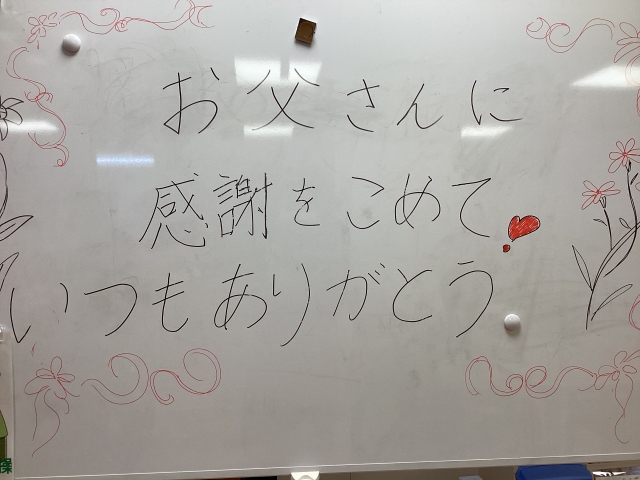 お父さんに
感謝をこめて
いつもありがとう
保